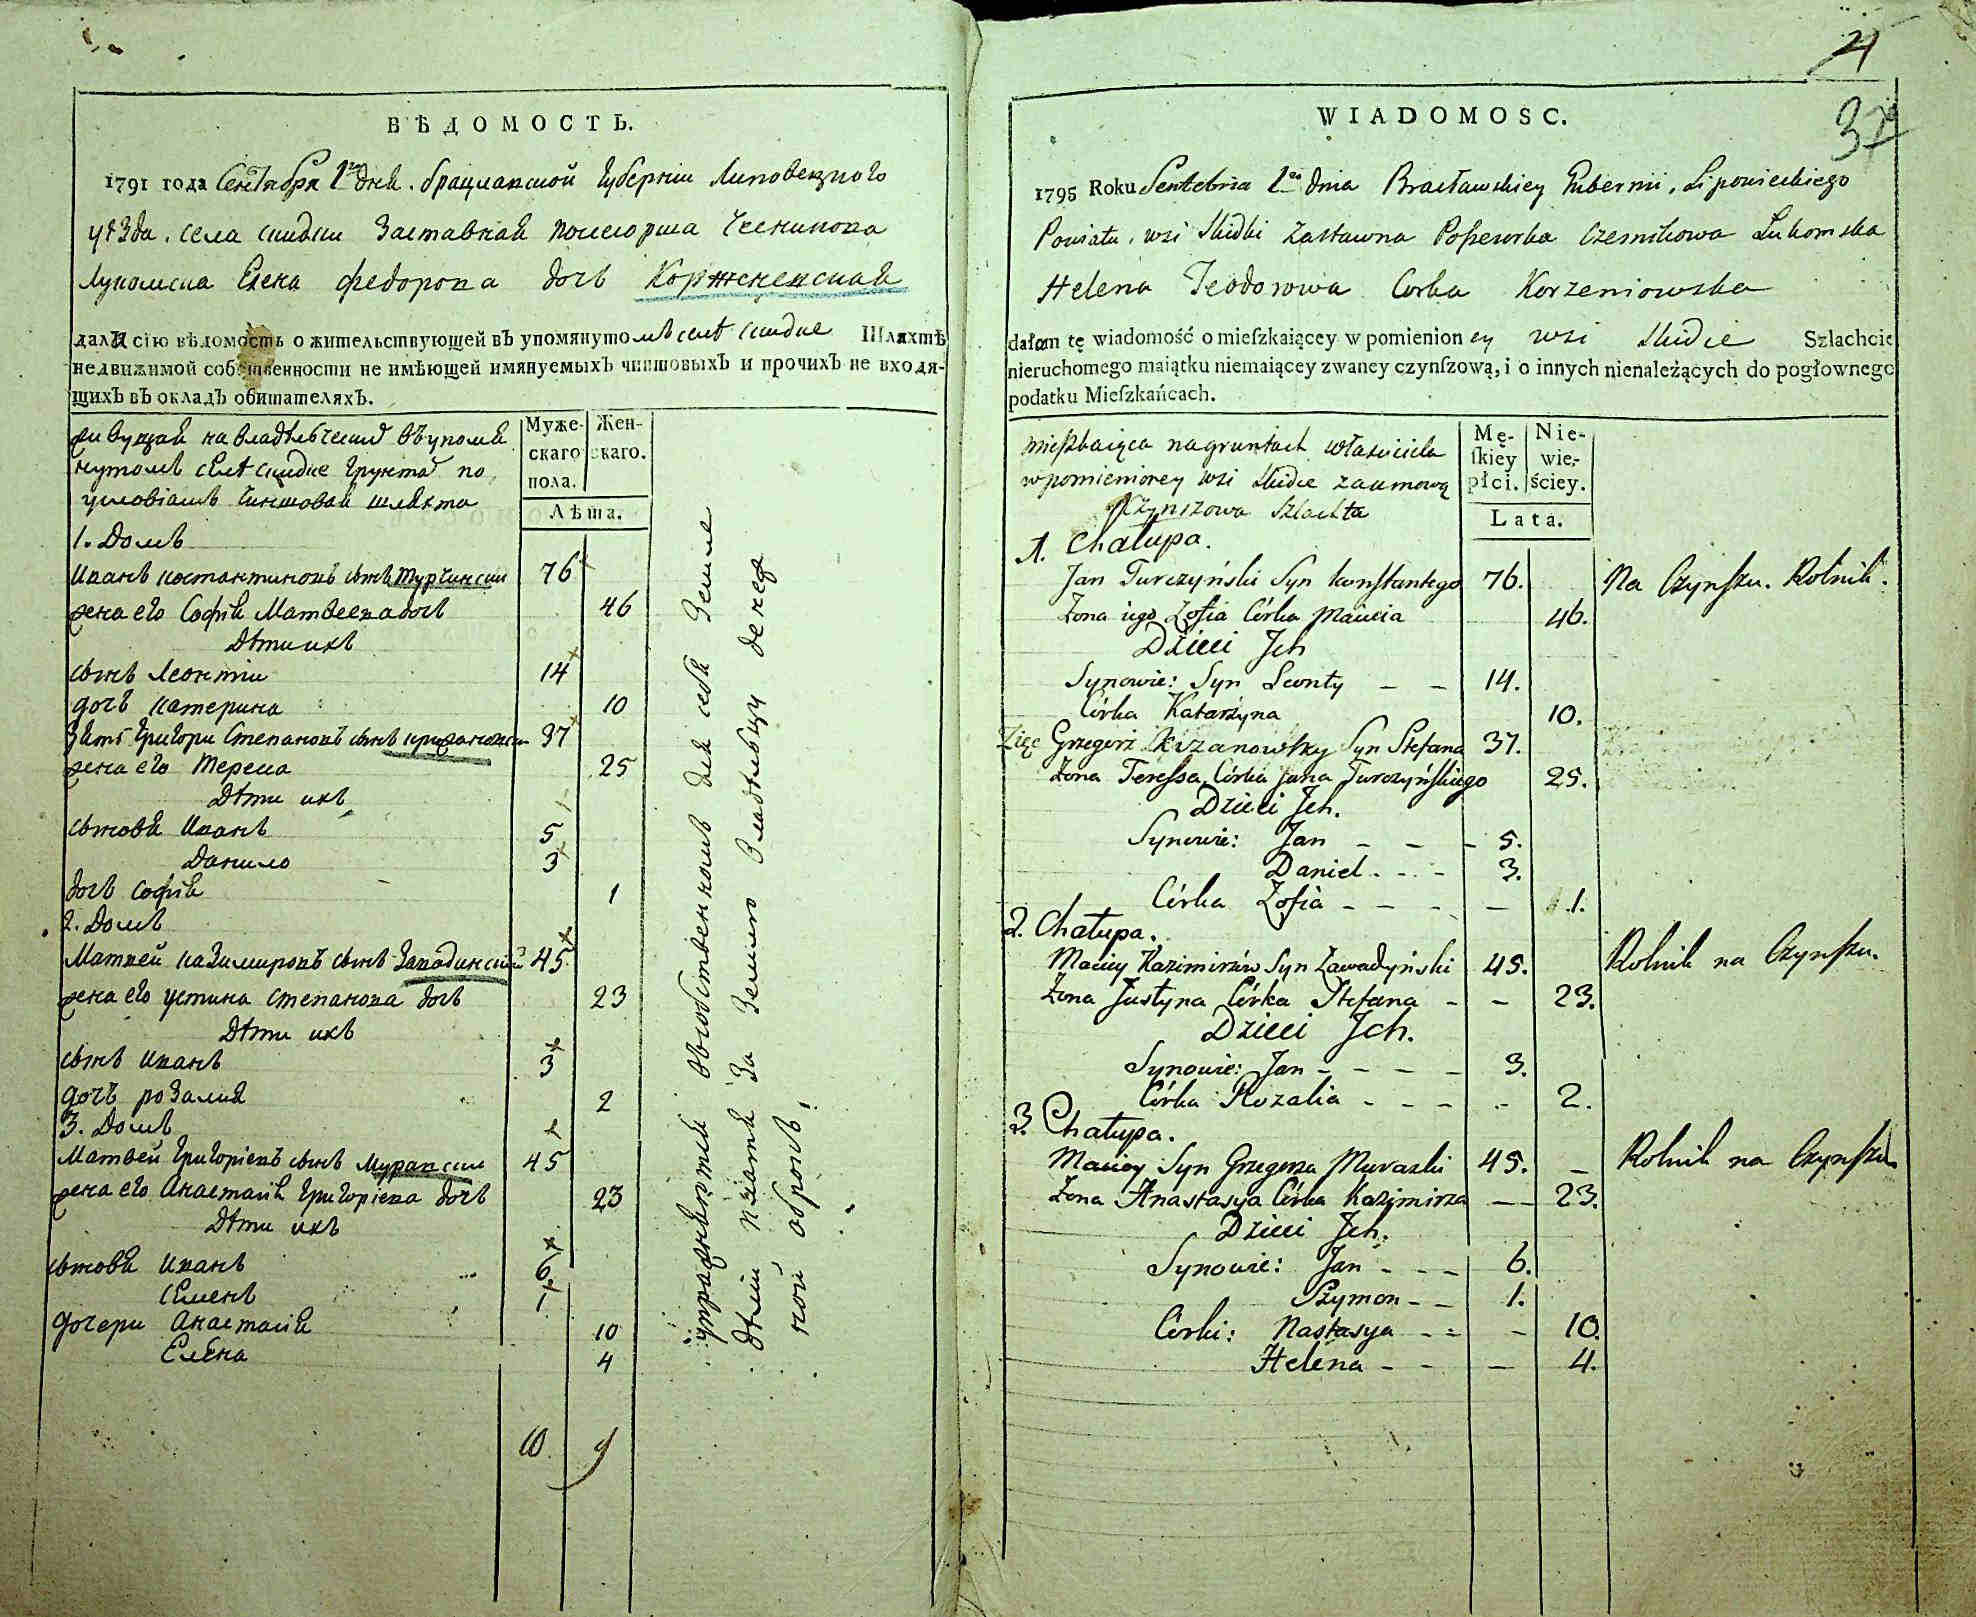 ВѢДОМОСТЬ.
1791 года Сентября 1го дня. брацлавской губернии Липовецкого
уѣзда. села скидки Заставная посесорша Чесникова
Лукомска Елена федорова дочь Корженевская
дала сію вѣдомость о жительствующей въ упомянутомъ селѣ скидке Шляхтѣ
недвижимой собственности не имѣющей имянуемыхъ чиншовыхъ и прочихъ не входя-
щихъ въ окладъ обитателяхъ.
живущая на владѣльческих въ упомя
нутомъ селѣ скидке грунтах по
условіамъ чиншовая шляхта
Муже-
скаго
пола.
Жен-
скаго.
Лѣта.
1. Домъ
Иванъ костантиновъ сынъ Турчински 76
жена его Софія Матвеева дочь 46
Дѣти ихъ
сынъ Леонтіи 14
дочь катерина 10
Зять Григори Степановъ сынъ крижановски 37
жена его Тереса 25
Дѣти ихъ
сыновя Иванъ 5
Данило 3
дочь софія 1
2. Домъ
Матвей казимировъ сынъ Завадинский 45
жена его устина степанова дочь 23
Дѣти ихъ
сынъ иванъ 3
дочь розалия 2
3. Домъ
Матвей Григоріевъ сынъ Муравски 45
жена его Анастасія Григоріева дочь 23
Дѣти ихъ
сыновя иванъ 6
Семенъ 1
дочери Анастасія 10
Елена 4
10 9
упражняютъся обработиваниемъ для себя Земле
дѣлии платя за Землю Владѣльцу денеж
ной оброкъ.
21
37
WIADOMOSC.
1795 Roku Sentebria 1go dnia Bracławskiey Gubernii, Lipowieckiego
Powiatu, wsi Skidki Zastawna Possesorka Czesnikowa Łukomska
Helena Teodorowa Corka Korzeniowska
dałam tę wiadomość o mieszkaiącey w pomienioney wsi Skidce Szlachcie
nieruchomego maiątku niemaiącey zwaney czynszową, i o innych nienależących do pogłownego
podatku Mieszkańcach.
mieszkaiąca na gruntach Właściciela
w pomienioney wsi Skidce za umową
Czynszowa Szlachta
Mę-
skiey
płci.
Nie-
wie-
ściey.
Lata.
1. Chałupa.
Jan Turczyński Syn konstantego 76. Na Czynszu. Rolnik.
Zona iego Zofia Córka Macieia 46.
Dzieci Jch
Synowie: Syn Leonty – – 14.
Córka Katarzyna 10.
Zięc Grzegorz Krzanowsky Syn Stefana 37.
Zona Teressa Córka Jana Turczyńskiego 25.
Dzieci Jch.
Synowie: Jan – – – 5.
Daniel – – – 3.
Córka Zofia – – – – 1.
2. Chałupa.
Maciey Kazimirzów Syn Zawadyński 45. Rolnik na Czynszu.
Zona Justyna Córka Stefana – – 23.
Dzieci Jch.
Synowie: Jan – – – – 3.
Córka Rozalia – – – – 2.
3. Chałupa.
Maciey Syn Grzegorza Murawski 45. – Rolnik na Czynszu
Zona Anastasya Córka Kazimirza – – 23.
Dzieci Jch.
Synowie: Jan – – – 6.
Szymon – – 1.
Córki: Nastasya – – – 10.
Helena – – – 4.